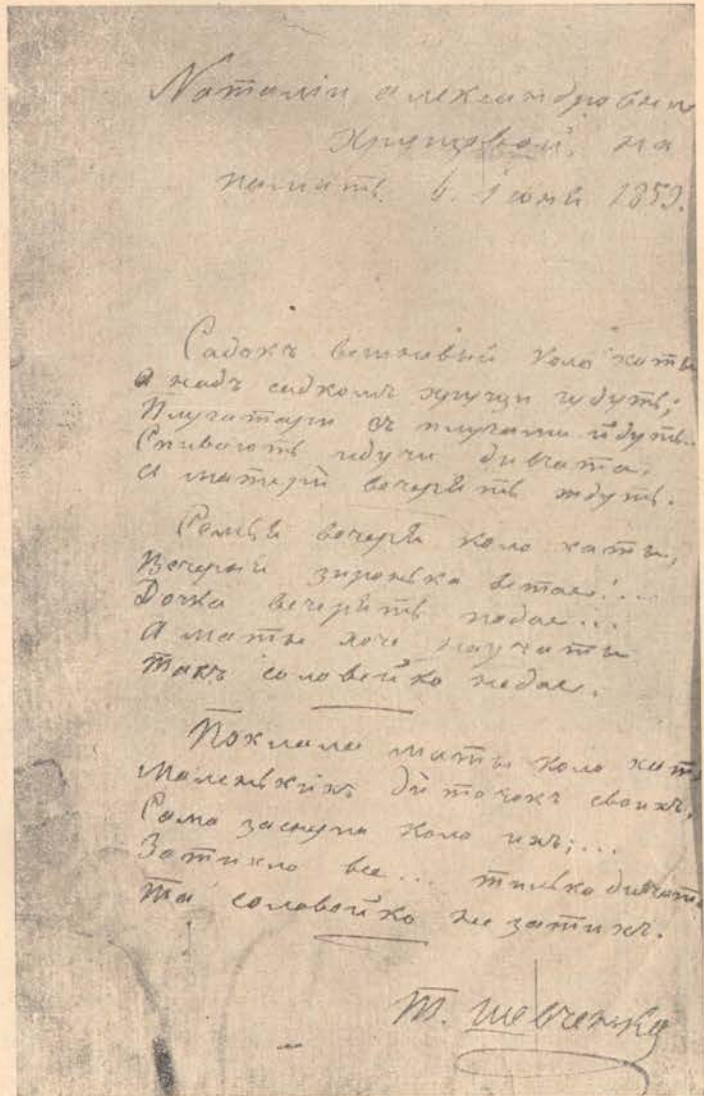 Наталіи Александровни
Хрущовой, на
память. 6. Іюня 1859.
Садокъ вишневый коло хаты
А надъ садкомъ хрущи гудуть;
Плугатари зъ плугами йдуть.
Спивають идучи дивчата,
А матери вечерять ждуть.
Семья вечеря коло хаты,
Вечерня зиронька встае!...
Дочка вечерять подае...
А маты хоче научаты
Такъ соловейко недае.
Поклала маты коло хаты
Маленькихъ диточокъ своихъ,
Сама заснула коло ихъ;...
Затихло все... тилько дивчата
Та соловейко не затихъ.
Т. Шевченко